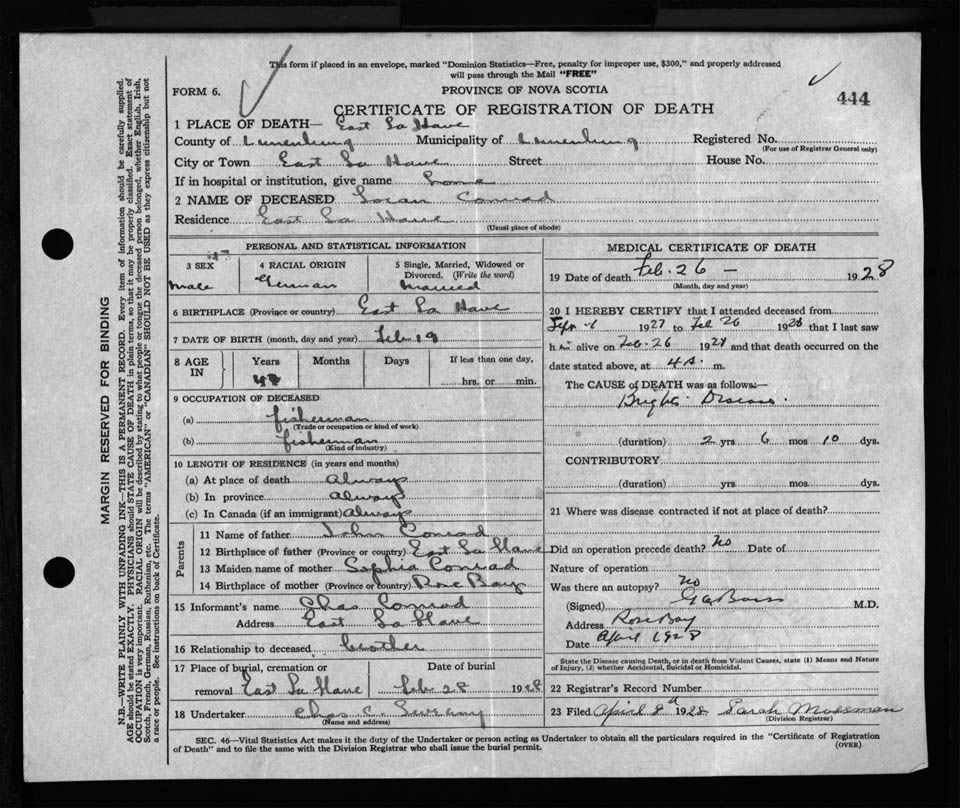 This form if placed in an envelope, marked "Dominion Statistics—Free, penalty for improper use, $300," and properly addressed
will pass through the Mail "FREE"
FORM 6.
PROVINCE OF NOVA SCOTIA
444
CERTIFICATE OF REGISTRATION OF DEATH
1 PLACE OF DEATH— East La Have
County of Lunenburg Municipality of Lunenburg Registered No.
(For use of Registrar General only)
City or Town East La Have Street House No.
If in hospital or institution, give name home
2 NAME OF DECEASED Conrad
Residence East La Have
(Usual place of abode)
PERSONAL AND STATISTICAL INFORMATION
3 SEX
male
4 RACIAL ORIGIN
German
5 Single, Married, Widowed or
Divorced. (Write the word)
married
6 BIRTHPLACE (Province or country) East La Have
7 DATE OF BIRTH (month, day and year) Feb 19
8 AGE
IN
Years
Months
Days
If less than one day,
hrs. or min.
9 OCCUPATION OF DECEASED
(a) fisherman
(Trade or occupation or kind of work)
(b) fisherman
(Kind of industry)
10 LENGTH OF RESIDENCE (in years and months)
(a) At place of death always
(b) In province always
(c) In Canada (if an immigrant) always
Parents
11 Name of father John Conrad
12 Birthplace of father (Province or country) East La Have
13 Maiden name of mother Sophia Conrad
14 Birthplace of mother (Province or country) Rose Bay
15 Informant's name Chas Conrad
Address East La Have
16 Relationship to deceased brother
17 Place of burial, cremation or
removal East La Have
Date of burial
Feb 28 1928
18 Undertaker Chas C.
(Name and address)
MEDICAL CERTIFICATE OF DEATH
19 Date of death Feb. 26 — 1928
(Month, day and year)
20 I HEREBY CERTIFY that I attended deceased from
Sept 1927 to Feb 26 1928 that I last saw
him alive on Feb. 26 1928 and that death occurred on the
date stated above, at 4 A. m.
The CAUSE of DEATH was as follows:—
Brights Disease.
(duration) 2 yrs 6 mos 10 dys.
CONTRIBUTORY
(duration) yrs mos dys.
21 Where was disease contracted if not at place of death?
Did an operation precede death? No Date of
Nature of operation
Was there an autopsy? No
(Signed) M.D.
Address Rose Bay
Date April 1928
State the Disease causing Death, or in death from Violent Causes, state (1) Means and Nature
of Injury, (2) whether Accidental, Suicidal or Homicidal.
22 Registrar's Record Number
23 Filed April 8th 1928 Sarah Mossman
(Division Registrar)
SEC. 46—Vital Statistics Act makes it the duty of the Undertaker or person acting as Undertaker to obtain all the particulars required in the "Certificate of Registration
of Death" and to file the same with the Division Registrar who shall issue the burial permit.
(OVER)
MARGIN RESERVED FOR BINDING
N.B.—WRITE PLAINLY WITH UNFADING INK—THIS IS A PERMANENT RECORD. Every item of information should be carefully supplied.
AGE should be stated EXACTLY. PHYSICIANS should STATE CAUSE OF DEATH in plain terms, so that it may be properly classified. Exact statement of
OCCUPATION is very important. RACIAL ORIGIN will be described by stating to what people or tongue the deceased person belonged, whether English, Irish,
Scotch, French, German, Russian, Ruthenian, etc. The terms "AMERICAN" or "CANADIAN" SHOULD NOT BE USED as they express citizenship but not
a race or people. See instructions on back of Certificate.